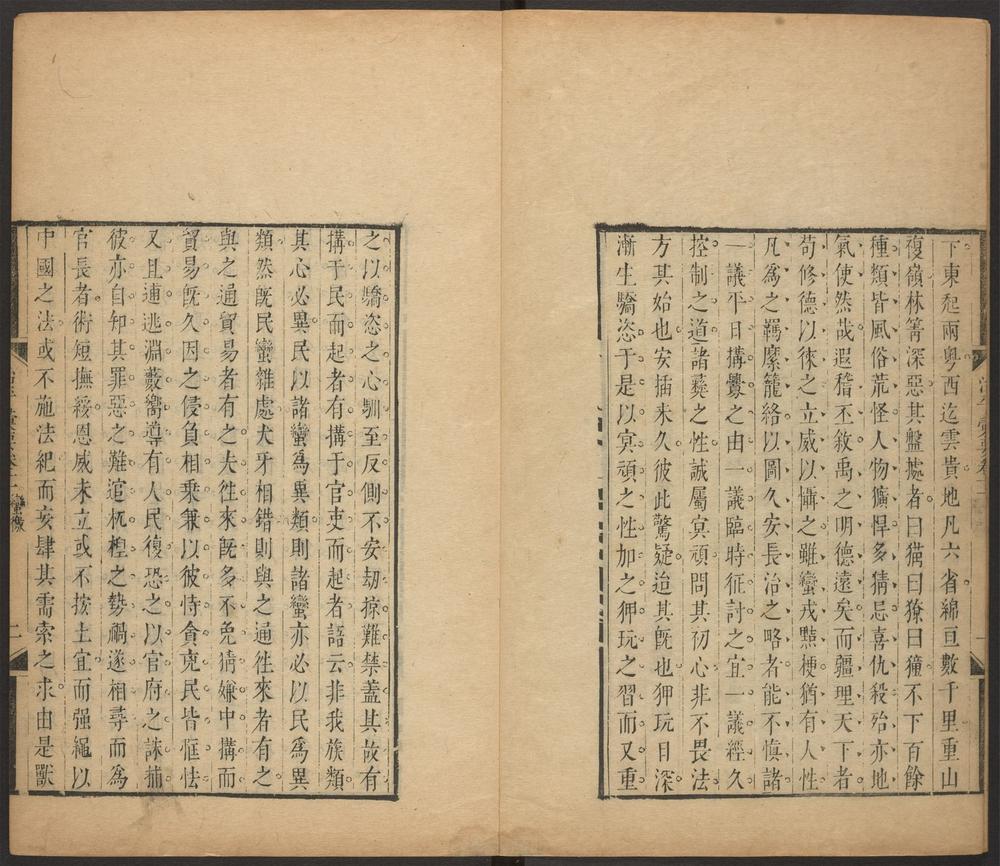 下東起兩粤西迄雲貴地凡六省綿亘數千里重山
複嶺林箐深惡其盤據者曰猫曰獠曰獞不下百餘
種類皆風俗荒怪人物獷悍多猜忌喜仇殺殆亦地
氣使然哉遐稽丕敘禹之明德遠矣而疆理天下者
苟修德以徠之立威以懾之雖蠻戎黠梗猶有人性
凡爲之羈縻籠絡以圖久安長治之略者能不慎諸
一議平日搆釁之由一議臨時征討之宜一議經久
控制之道諸彝之性誠屬冥頑問其初心非不畏法
方其始也安插未久彼此驚疑迨其旣也狎玩日深
漸生驕恣于是以冥頑之性加之狎玩之習而又重
之以驕恣之心馴至反側不安劫掠難禁葢其故有
搆于民而起者有搆于官吏而起者語云非我族類
其心必異民以諸蠻爲異類則諸蠻亦必以民爲異
類然旣民蠻雜處犬牙相錯則與之通徃來者有之
與之通貿易者有之夫徃來旣多不免猜嫌中搆而
貿易旣久因之侵負相乗兼以彼恃貪兇民皆恇怯
又且逋逃淵藪嚮導有人民復恐之以官府之誅捕
彼亦自知其罪惡之難逭杌棿之勢禍遂相尋而爲
官長者術短撫綏恩威未立或不按土宜而强繩以
中國之法或不施法紀而妄肆其需索之求由是獸
蠻徼
二